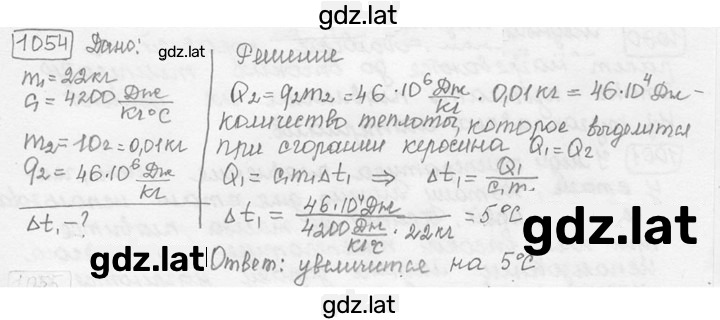 gdz.lat
1054 Дано:
m₁=22кг
c₁=4200 Дж/кг°C
m₂=10г=0,01кг
q₂=46·10⁶ Дж/кг
Δt₁-?
Решение
Q₂=q₂m₂=46·10⁶ Дж/кг·0,01кг=46·10⁴Дж-
количество теплоты, которое выделится
при сгорании керосина Q₁=Q₂
Q₁=c₁m₁Δt₁ ⇒ Δt₁=Q₁/c₁m₁.
Δt₁=46·10⁴Дж/4200 Дж/кг°C·22кг=5°C
gdz.lat
gdz.lat
Ответ: увеличится на 5°C
gdz.lat